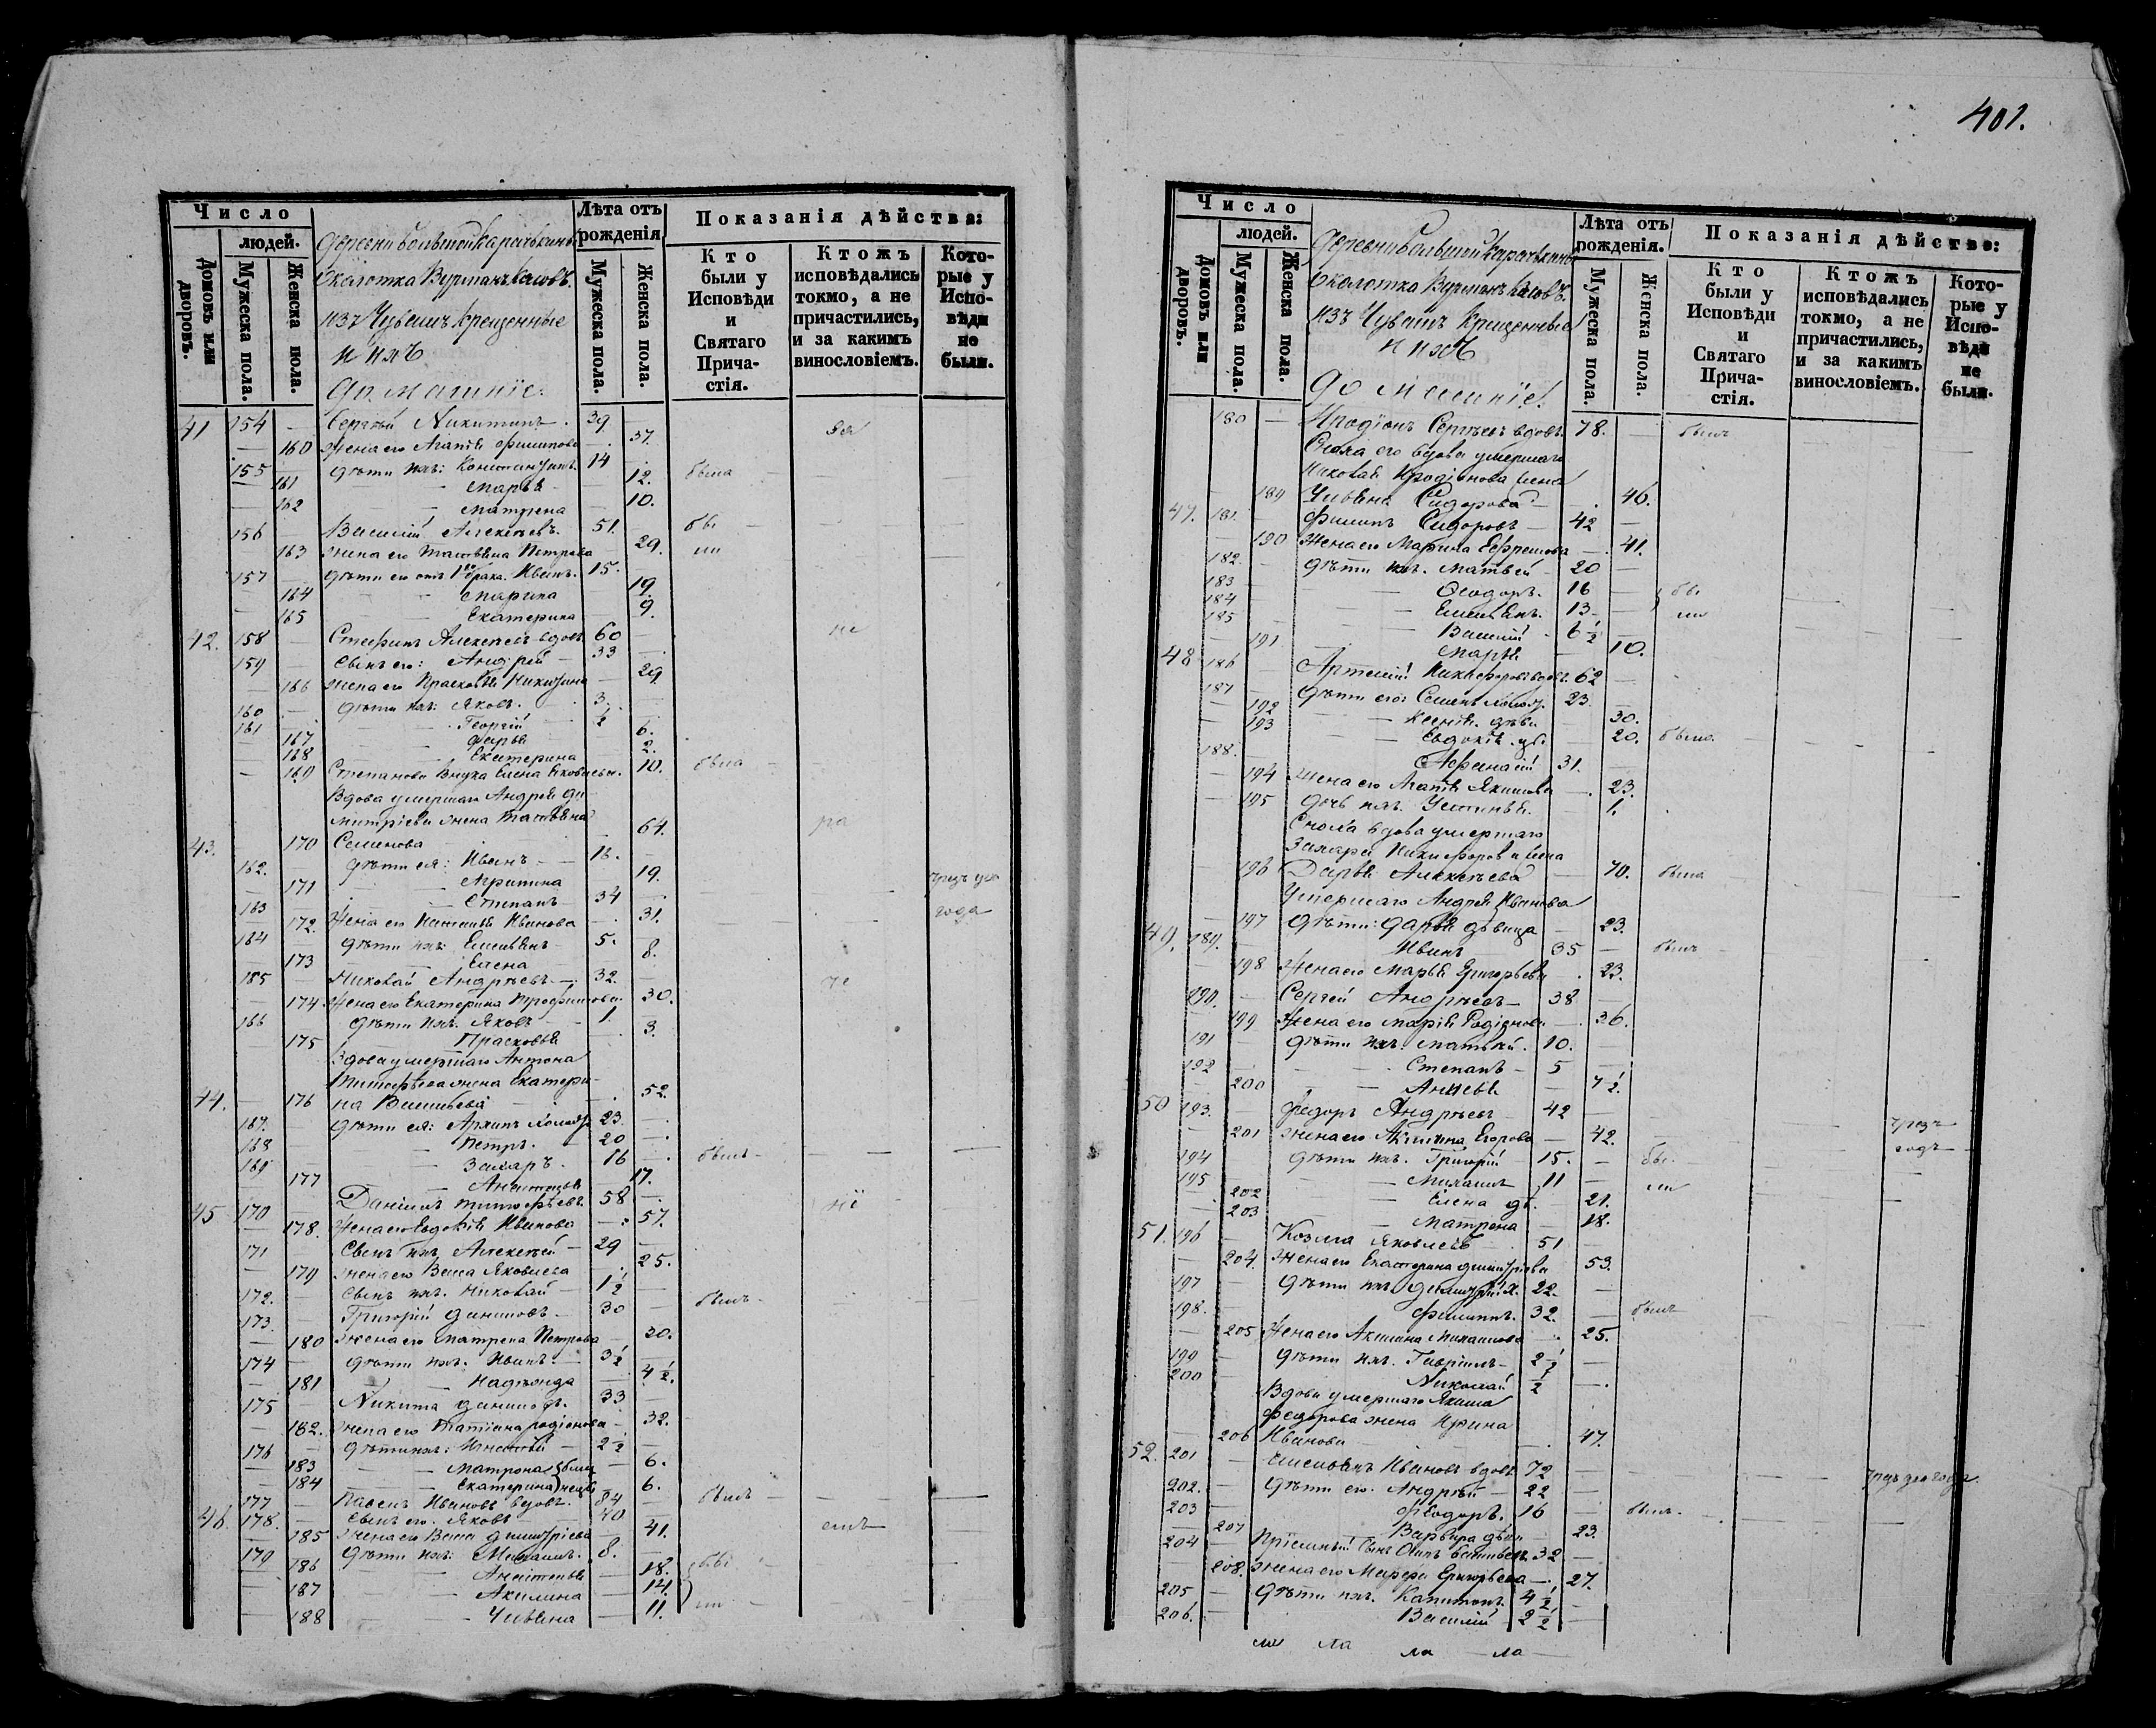 401.
Число
людей.
Домовъ или дворовъ.
Мужеска пола.
Женска пола.
Деревни большой Карачькины
Околотка Вурманъ касовъ.
изъ Чувашъ крещенные
и ихъ
домашніе:
Лѣта отъ рожденія
Мужеска пола.
Женска пола.
Показанія дѣйства:
Кто были у Исповѣди и Святаго Причастія.
Ктожъ исповѣдались токмо, а не причастились, и за какимъ винословіемъ.
Которые у Исповѣди не были.
41 154 — Сергѣй Никитинъ. 39 —
— 160 Жена его Агафія Филипова — 37.
155 — дѣти ихъ: Константинъ. 14 —
161 Марья 12. была
— 162 Матрена — 10.
156 Василій Алексѣевъ. 51.
163 жена его Татьяна Петрова 29.
157 — дѣти его отъ 1го брака. Иванъ. 15.
— 164 Марина 19.
— 165 Екатерина 9.
42. 158 — Стефанъ Алексѣевъ вдовъ 60 — не
159 — сынъ его: Андрей 33
— 166 жена его Прасковья Никитина — 29
160 — дѣти ихъ: Яковъ. 3.
161 Георгій ½
— 167 Дарья 6.
— 168 Екатерина 2.
— 169 Степанова внука Елена Яковлева. 10. была
Вдова умершаго Андрея Ди-
митріева жена Татьяна
43. 170 Семенова 64.
162. дѣти ея: Иванъ — 16.
— 171 Агрипина 19.
163 Степанъ 34 —
— 172. Жена его Наталья Ивановa — 31. года
164 — дѣти ихъ: Емельянъ 5.
— 173 Елена 8.
165 — Николай Андрѣевъ — 32. не
— 174. Жена его Екатерина Трофимова 30.
166 — дѣти ихъ. Яковъ — 1.
— 175 Прасковья 3.
Вдова умершаго Антона
Тимофѣева жена Екатери-
44. — 176 на Васильева 52.
167. — дѣти ея: Архипъ холост 23. —
168 Петръ. 20 —
169 Захаръ. 16 — былъ —
— 177 Анастасья 17.
45 170 — Данилъ Тимофѣевъ 58 —
— 178. Жена его Евдокія Иванова — 57.
171 — Сынъ ихъ Алексѣй — 29 —
— 179 жена его Васса Яковлева 25.
172. — сынъ ихъ. Николай — 1½
173. — Григорій Даниловъ — 30 — былъ —
— 180 жена его Матрена Петрова — 30.
174 — дѣти ихъ. Иванъ. — 3½
— 181 Надежда 4½.
175 — Никита Даниловъ. 33
— 182. жена его Татіана Родіонова — 32.
176 — дѣти ихъ: Игнатій — 2½
— 183 Матрона 6.
— 184 Екатерина 6.
177 — Павелъ Ивановъ вдовъ. 84 — былъ —
46. 178. — сынъ его. Яковъ 40
— 185 жена его Васса Димитріева — 41.
179 дѣти ихъ: Михаилъ. 8.
— 186 Анастасья — 18.
— 187 Акилина — 14.
— 188 Ульяна — 11.
Число
людей.
Домовъ или дворовъ.
Мужеска пола.
Женска пола.
Деревни большой Карачькины
Околотка Вурманъ касовъ.
изъ Чувашъ крещенные
и ихъ
домашніе:
Лѣта отъ рожденія.
Мужеска пола.
Женска пола.
Показанія дѣйство:
Кто были у Исповѣди и Святаго Причастія.
Ктожъ исповѣдались токмо, а не причастились, и за какимъ винословіемъ.
Которые у Исповѣди не были.
180 — Иродіонъ Сергѣевъ вдовъ. 78. — былъ
Сноха его вдова умершаго
Николая Иродіонова жена
189 Ульяна Сидорова — 46.
47. 181. Филипъ Сидоровъ — 42 —
190 Жена его Марина Ефремова — 41.
182. дѣти ихъ. Матвей 20 —
183 Ѳеодоръ. 16 —
184 Емельянъ. 13 —
185 Василій 6½
— 191 Марья 10.
48 186 — Артемій Никифоровъ вдовъ. 62 —
187 дѣти его: Семенъ холост. 23. —
— 192 Ксенія дѣв. 30.
— 193 Евдокія. дѣ. 20. была.
188. Афанасій 31. —
— 194 жена его Агафья Якимова — 23.
— 195 дочь ихъ. Устинья. 1.
Сноха вдова умершаго
Захара Никифорова жена
196 Дарья Алексѣева — 70. была
Умершаго Андрея Иванова
— 197 дѣти: Дарья дѣвица — 23.
49. 189. Иванъ 35 — былъ
— 198 Жена его Марья Григорьева — 23.
190. — Сергей Андрѣевъ — 38 —
— 199 Жена его Марья Родіонова — 36.
191 — дѣти ихъ. Матвей. 10.
192 Степанъ — 5 —
— 200 7½
50 193. — Федоръ Андрѣевъ — 42 —
— 201 жена его Акилина Егорова — 42. чрезъ
194 — дѣти ихъ. Григорій — 15. — годъ
195 Михаилъ 11 —
— 202 Елена дѣ. — 21.
— 203 Матрена — 18.
51. 196 — Козма Яковлевъ 51 —
— 204. жена его Екатерина Димитріева 53.
197 — дѣти ихъ. Димитрій х. 22. —
198. Филиппъ. 32. былъ
— 205 Жена его Акилина Михаилова — 25.
199 — дѣти ихъ. Гавріилъ — 2½ —
200 Николай ½ —
Вдова умершаго Якима
Федорова жена Ирина
— 206 Иванова — 47.
52. 201 — Емельянъ Ивановъ вдовъ 72 —
202. — дѣти его. Андрей — 22 —
203 Ѳеодоръ. 16 былъ.
— 207 Варвара дѣви 23.
204 — Пріемный сынъ Осипъ Васильевъ. 32 —
— 208. жена его Марфа Григорьева — 27.
205 — дѣти ихъ. Капитонъ. 4½
206. — Василій 2½ —